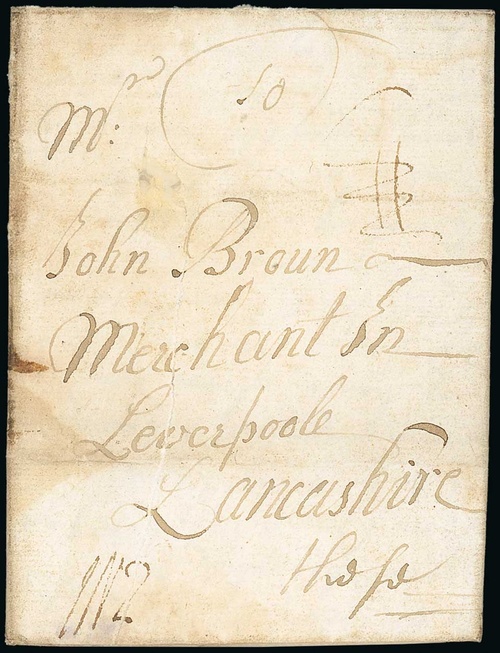 10
Mr:
John Broun
Merchant In
Leverpoole
Lancashire
these